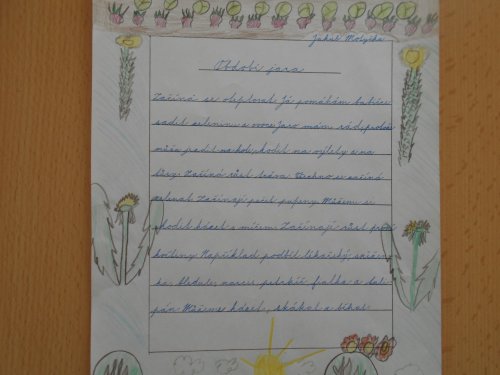 Jakub Motyčka
Období jara
Začíná se oteplovat. Já pomáhám babičce
sadit zeleninu a ovoce. Jaro mám rád, protože
můžu jezdit na kole, chodit na výlety a na
Začíná růst tráva. Všechno se začíná
zelenat. Začínají pučet pupeny. Můžeme si
chodit házet s míčem. Začínají růst první
květiny. Například podběl lékařský, sněžen-
ka, bledule, narcis, petrklíč, fialka a tuli-
pán. Můžeme házet, skákat a běhat.